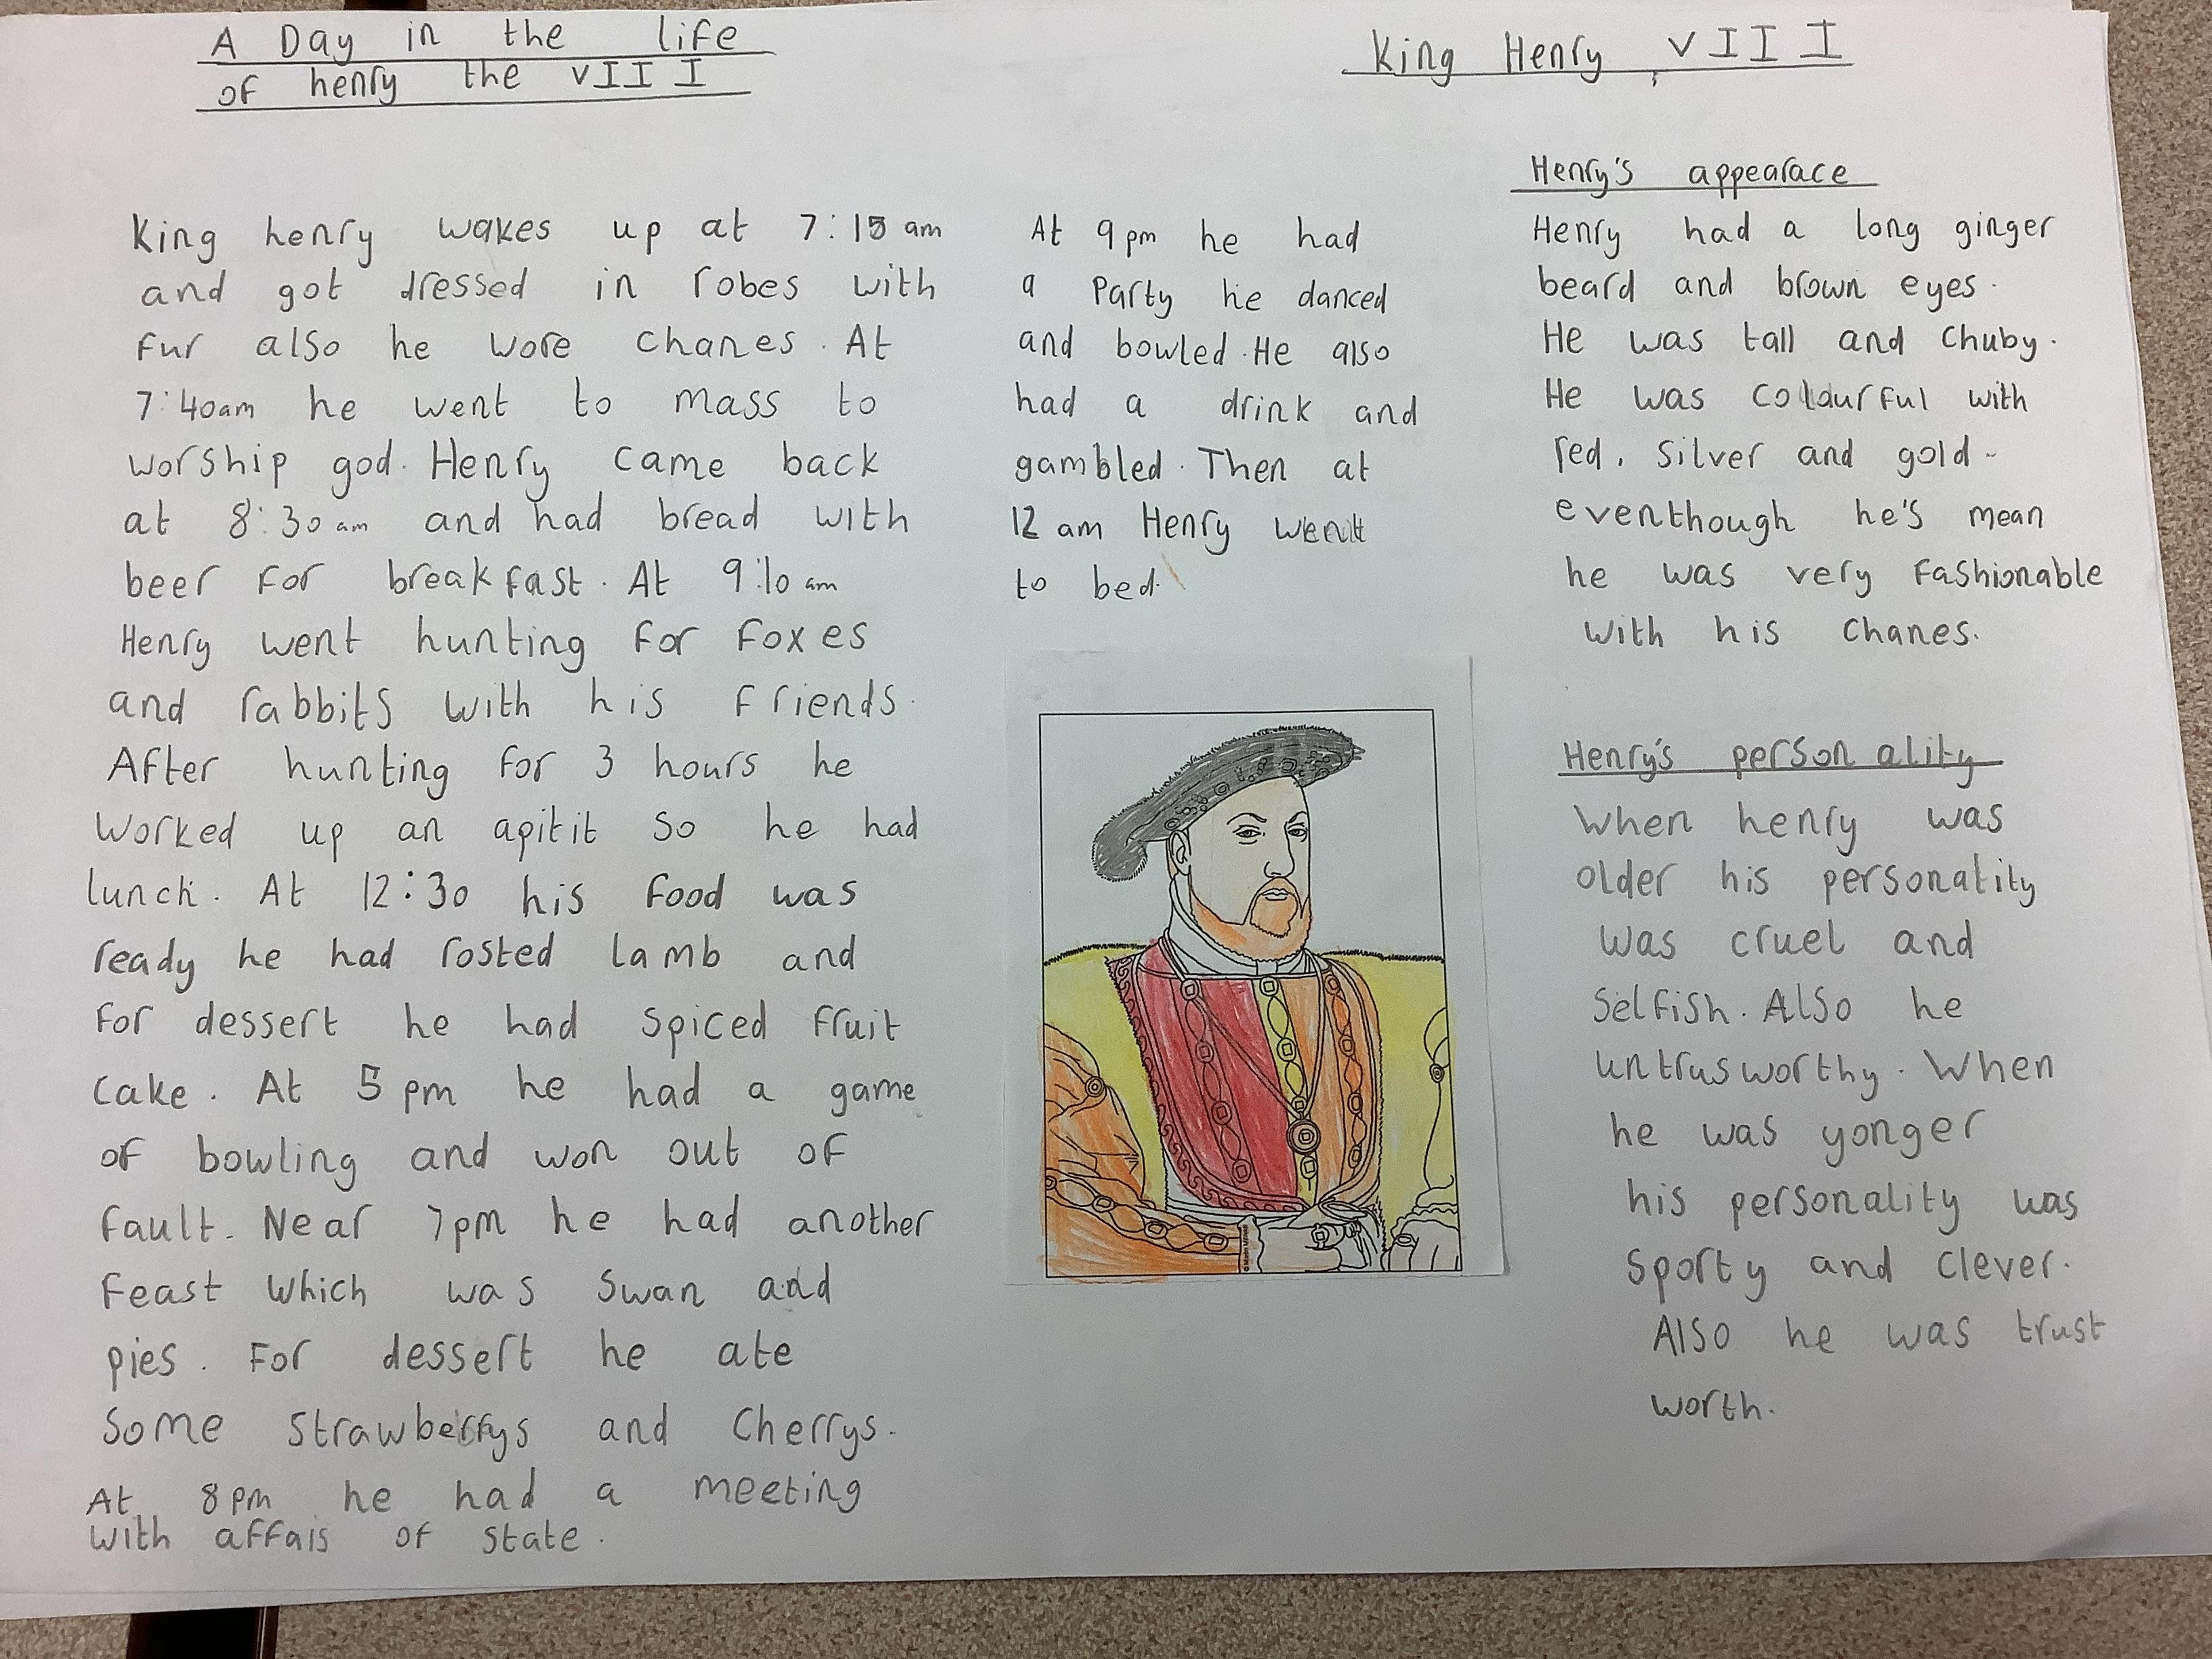 A Day in the life
of henry the VIII
King henry wakes up at 7:15 am
and got dressed in robes with
fur also he wore chanes. At
7:40am he went to mass to
worship god. Henry came back
at 8:30am and had bread with
beer for breakfast. At 9:10 am
Henry went hunting for foxes
and rabbits with his friends.
After hunting for 3 hours he
worked up an apitit so he had
lunch. At 12:30 his food was
ready he had rosted lamb and
for dessert he had spiced fruit
cake. At 5pm he had a game
of bowling and won out of
fault. Near 7pm he had another
feast which was swan and
pies. For dessert he ate
some strawberrys and cherrys.
At 8pm he had a meeting
with affais of state.
At 9pm he had
a party he danced
and bowled. He also
had a drink and
gambled. Then at
12 am Henry went
to bed.
King Henry VIII
Henry's appearace
Henry had a long ginger
beard and brown eyes.
He was tall and chuby.
He was colourful with
red, silver and gold.
eventhough he's mean
he was very fashionable
with his chanes.
Henry's personality
When henry was
older his personality
was cruel and
selfish. Also he
untrusworthy. When
he was yonger
his personality was
sporty and clever.
Also he was trust
worth.